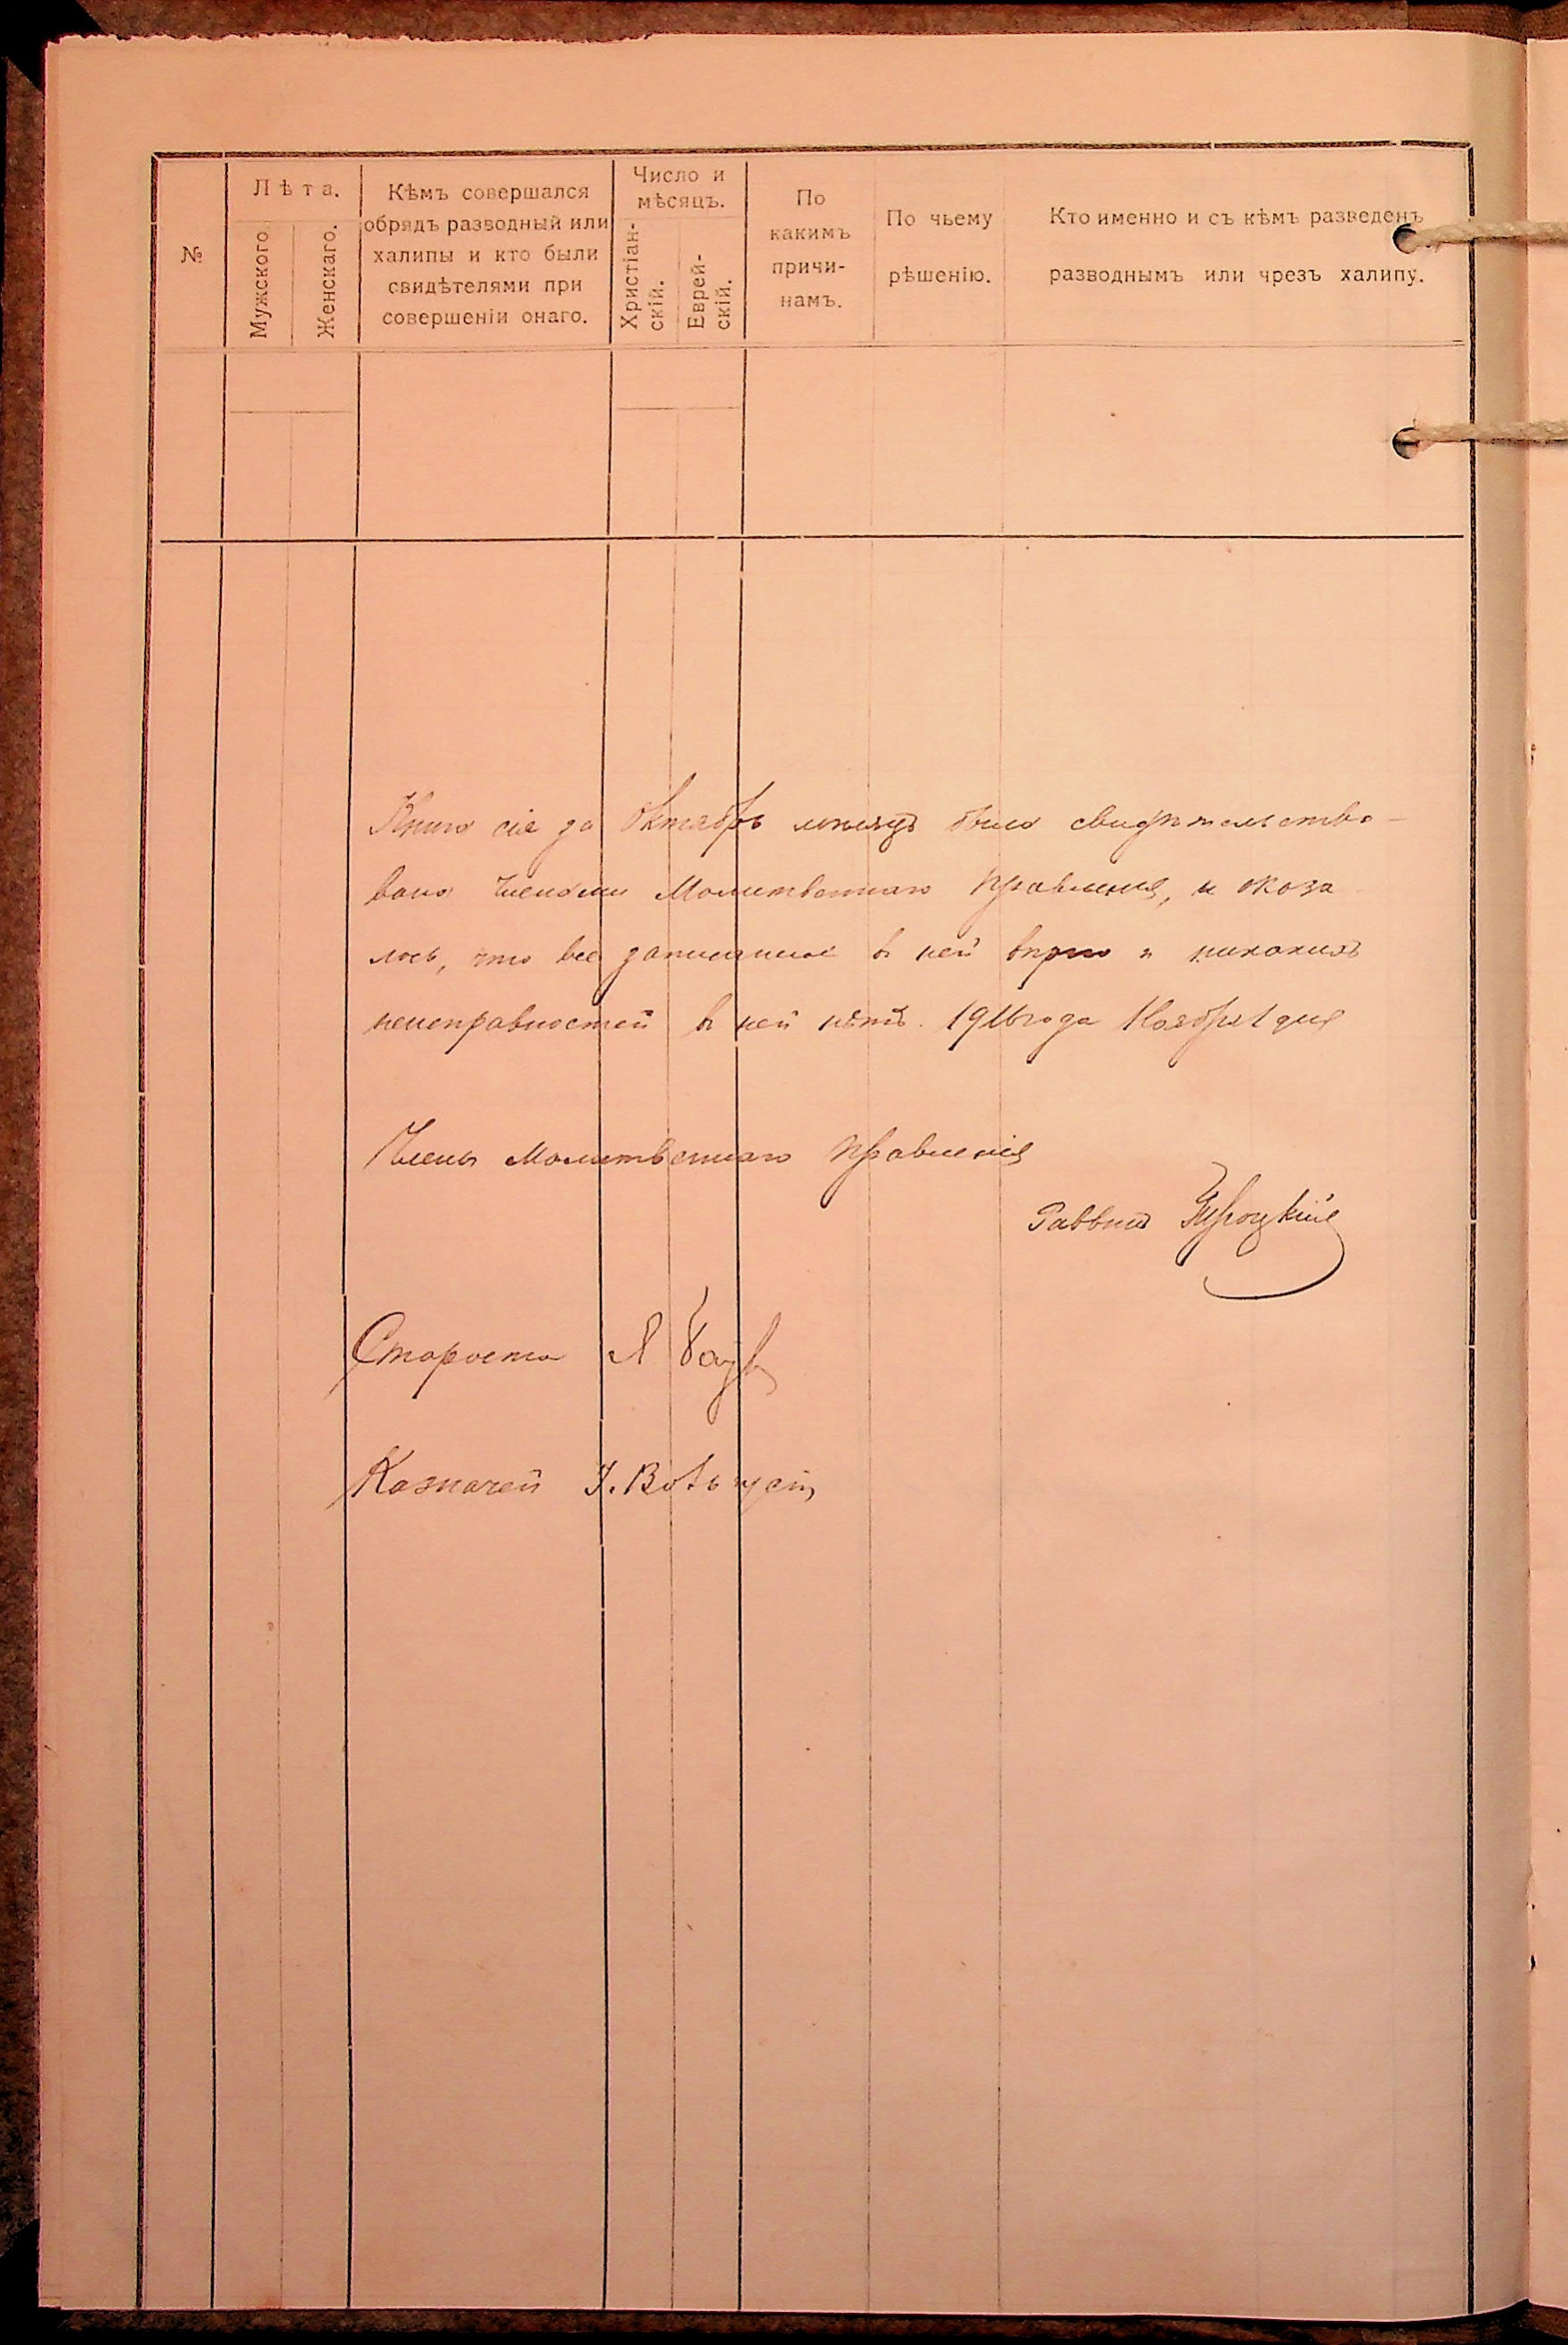 №
Лѣта.
Мужского.
Женскаго.
Кѣмъ совершался
обрядъ разводный или
халипы и кто были
свидѣтелями при
совершеніи онаго.
Число и
мѣсяцъ.
Христіан-
скій.
Еврей-
скій.
По
какимъ
причи-
намъ.
По чьему
рѣшенію.
Кто именно и съ кѣмъ разведенъ
разводнымъ или чрезъ халипу.
Книга сія за Октябрь мѣсяцъ была свидѣтельство-
вана членами Молитвеннаго Правленія, и оказа
лось, что все записанное въ ней вѣрно и никакихъ
неисправностей въ ней нѣтъ. 1916 года Ноября 1 дня
Члены Молитвеннаго Правленія
Раввинъ
Староста
Казначей